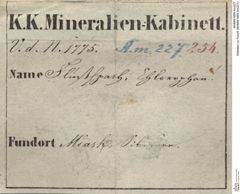 K.K. Mineralien-Kabinett.
V. d. N. 1775. A.m. 227 254.
Name Flussspath, Chlorophan.
Fundort Miask, Sibirien.